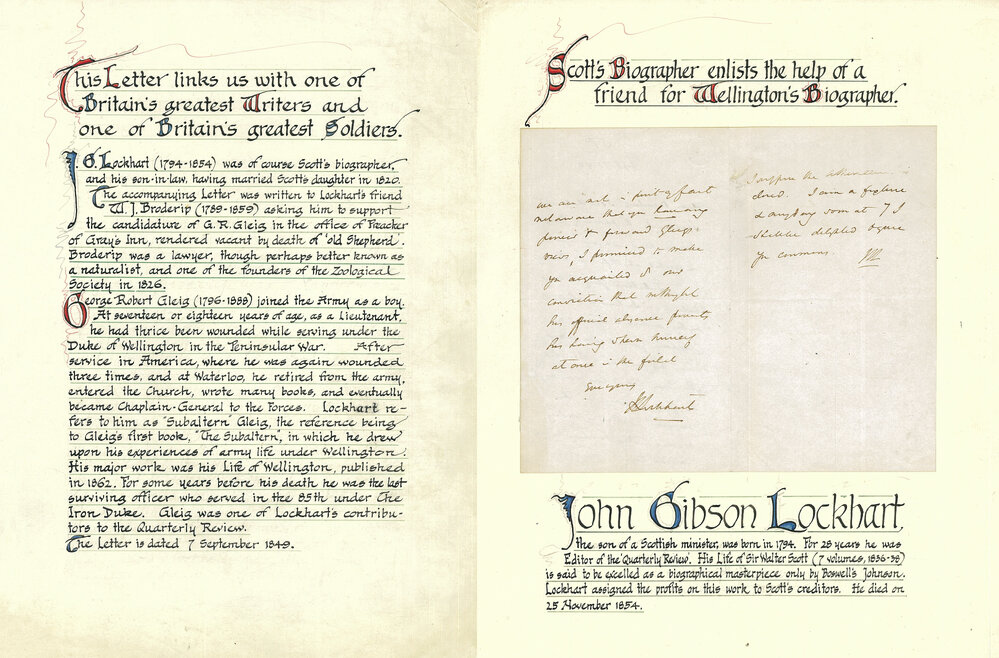 This Letter links us with one of
Britain's greatest Writers and
one of Britain's greatest Soldiers.
J. G. Lockhart (1794-1854) was of course Scott's biographer,
and his son-in-law, having married Scott's daughter in 1820.
The accompanying Letter was written to Lockhart's friend
W. J. Broderip (1789-1859) asking him to support
the candidature of G. R. Gleig in the office of Preacher
of Gray's Inn, rendered vacant by death of 'old Shepherd'.
Broderip was a lawyer, though perhaps better known as
a naturalist, and one of the founders of the Zoological
Society in 1826.
George Robert Gleig (1796-1888) joined the Army as a boy.
At seventeen or eighteen years of age, as a Lieutenant,
he had thrice been wounded while serving under the
Duke of Wellington in the Peninsular War. After
service in America, where he was again wounded
three times, and at Waterloo, he retired from the army,
entered the Church, wrote many books, and eventually
became Chaplain-General to the Forces. Lockhart re-
fers to him as "Subaltern" Gleig, the reference being
to Gleig's first book, "The Subaltern", in which he drew
upon his experiences of army life under Wellington.
His major work was his Life of Wellington, published
in 1862. For some years before his death he was the last
surviving officer who served in the 85th under The
Iron Duke. Gleig was one of Lockhart's contribu-
tors to the Quarterly Review.
The Letter is dated 7 September 1849.
Scott's Biographer enlists the help of a
friend for Wellington's Biographer.
we are not
not aware that you
I promised to make
you acquainted
conviction that
his official absence
his having
at once
JG Lockhart
I suppose the Athenaeum is
closed. I am a
at 7 I
delighted
John Gibson Lockhart,
the son of a Scottish minister, was born in 1794. For 28 years he was
Editor of the 'Quarterly Review'. His Life of Sir Walter Scott (7 volumes, 1836-38)
is said to be excelled as a biographical masterpiece only by Boswell's Johnson.
Lockhart assigned the profits on this work to Scott's creditors. He died on
25 November 1854.